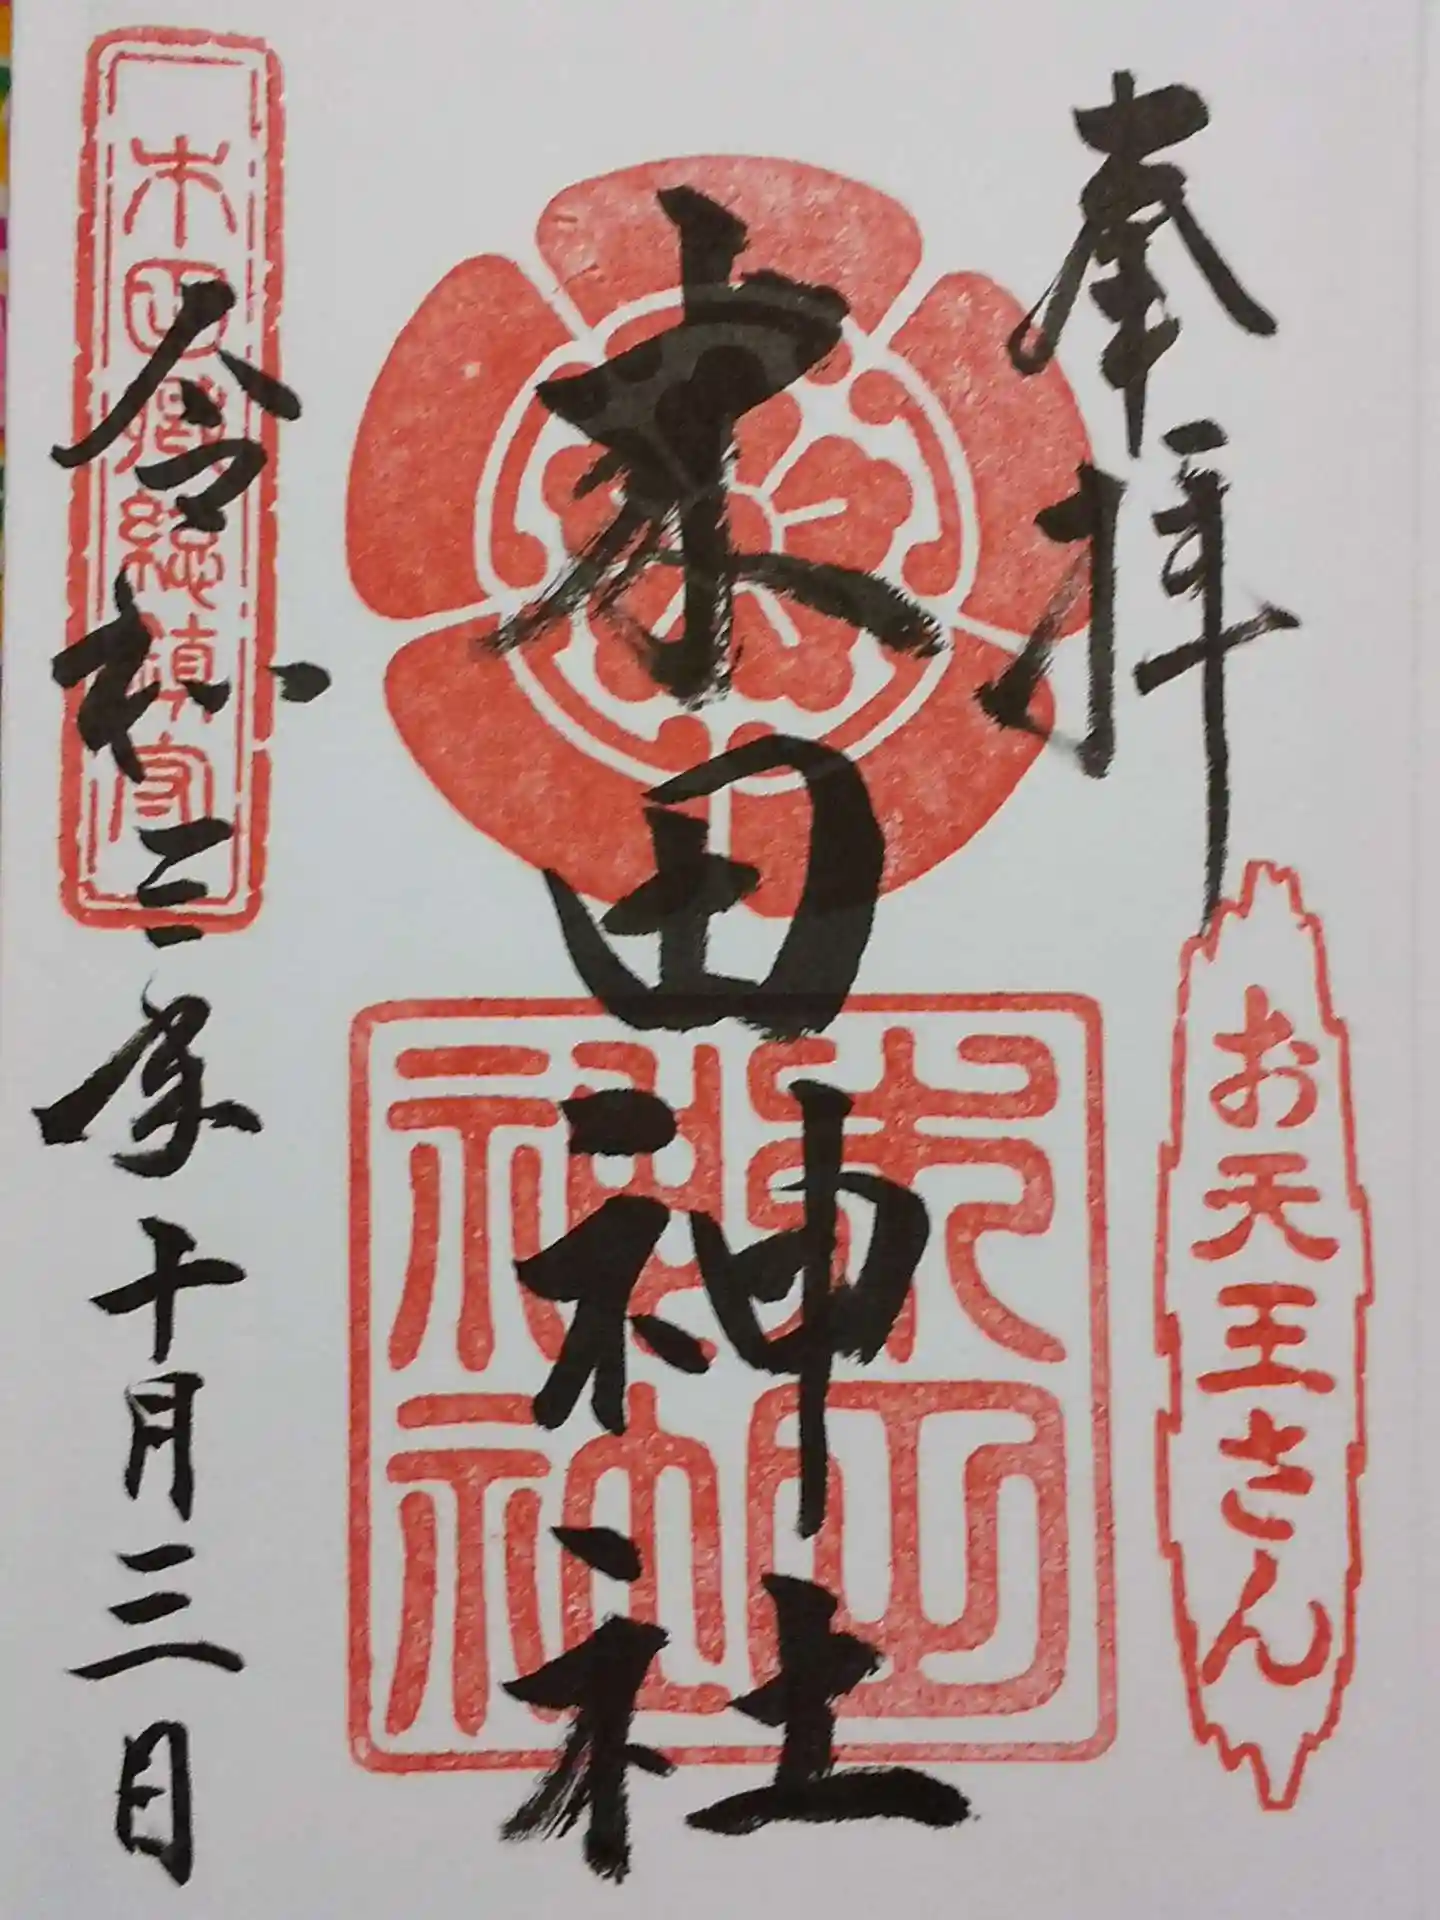 奉拝
お天王さん
木田神社
木田郷総鎮守
令和三年十月三日